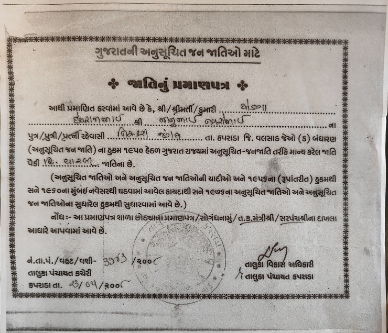 ગુજરાતની અનુસૂચિત જન જાતિઓ માટે
જાતિનું પ્રમાણપત્ર
આથી પ્રમાણિત કરવામાં આવે છે કે, શ્રી/શ્રીમતી/કુમારી
શ્રી ના
પુત્ર/પુત્રી/પત્ની રહેવાસી તા. કપરાડા જિ. વલસાડ જેઓ (ક) બંધારણ
(અનુસૂચિત જન જાતિ) ના હુકમ ૧૯૫૦ હેઠળ ગુજરાત રાજ્યમાં અનુસૂચિત-જનજાતિ તરીકે માન્ય કરેલ જાતિ
પૈકી જાતિના છે.
(અનુસૂચિત જાતિઓ અને અનુસૂચિત જન જાતિઓની યાદીઓ અને ૧૯૫૬ના (રૂપાંતરીત) હુકમથી
સને ૧૯૬૦ના મુંબઇ નવેસરથી ઘડવામાં આવેલ કાયદાથી સને ૧૯૭૬ના અનુસૂચિત જાતિઓ અને અનુસૂચિત
જન જાતિઓના સુધારેલ હુકમથી સુધારવામાં આવે છે.)
નોંધ:- આ પ્રમાણપત્ર શાળા છોડ્યાના પ્રમાણપત્ર/સોગંધનામું/ત.ક.મંત્રીશ્રી/સરપંચશ્રીના દાખલા
આધારે આપવામાં આવે છે.
નં.તા.પં./ /વશી- /૨૦૦
તાલુકા પંચાયત કચેરી
કપરાડા તા. /૨૦૦
તાલુકા વિકાસ અધિકારી
તાલુકા પંચાયત કપરાડા